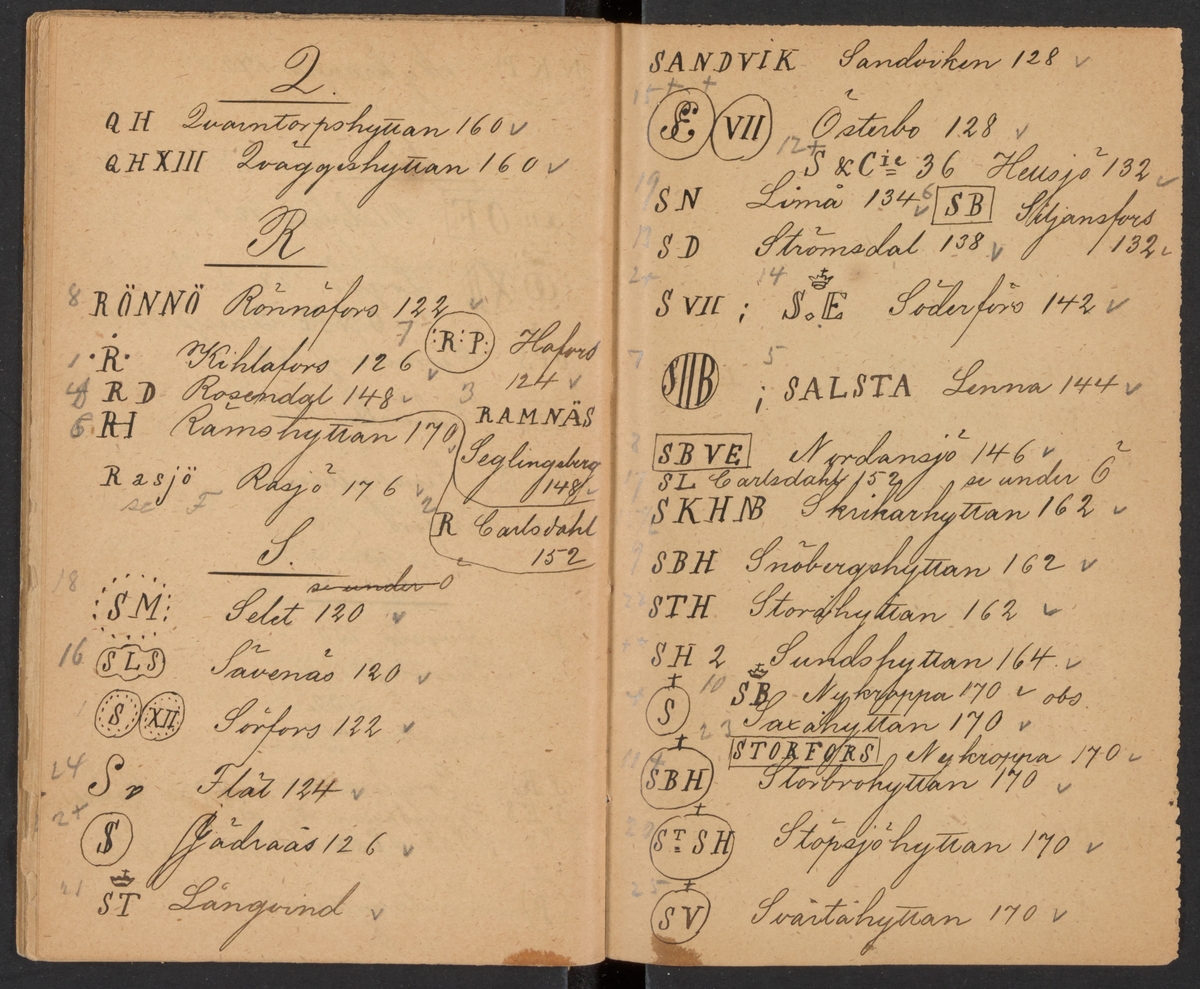 Q.
QH Qvarntorpshyttan 160 v
QHXIII Qväggeshyttan 160 v
R
8 RÖNNÖ Rönnöfors 122 v
7 :R:P: Hofors
124 v
1 ·R· Kihlafors 126 v
4 RD Rosendal 148 v
3 RAMNÄS
Seglingsberg
148 v
6 RH Rämshyttan 170
Rasjö Rasjö 176 v
se F
2 R Carlsdahl
152
S.
se under O
18 :SM: Selet 120 v
16 SLS Säfvenäs 120 v
S XII Sörfors 122 v
24 Sv Flät 124 v
2+ S Jädraås 126 v
21 ST Långvind v
SANDVIK Sandviken 128 v
15 + +
SE VII Österbo 128 v
12+ S & Cie 36 Heusjö 132 v
19 SN Limå 134 v
6 SB Siljansfors
132 v
13 SD Strömsdal 138 v
2+ S VII ; 14 S.E Söderfors 142 v
7 SIIB ; 5 SALSTA Lenna 144 v
8 SBVE Nordansjö 146 v
SL Carlsdahl 152 se under C
SKHNB Skrikarhyttan 162 v
9 SBH Snöbergshyttan 162 v
22 STH Storåhyttan 162 v
SH 2 Sundshyttan 164 v
10 SB Nykroppa 170 v obs.
S Saxåhyttan 170 v
23 STORFORS Nykroppa 170 v
11 SBH Storbrohyttan 170 v
20 ST SH Stöpsjöhyttan 170 v
25 SV Svartåhyttan 170 v